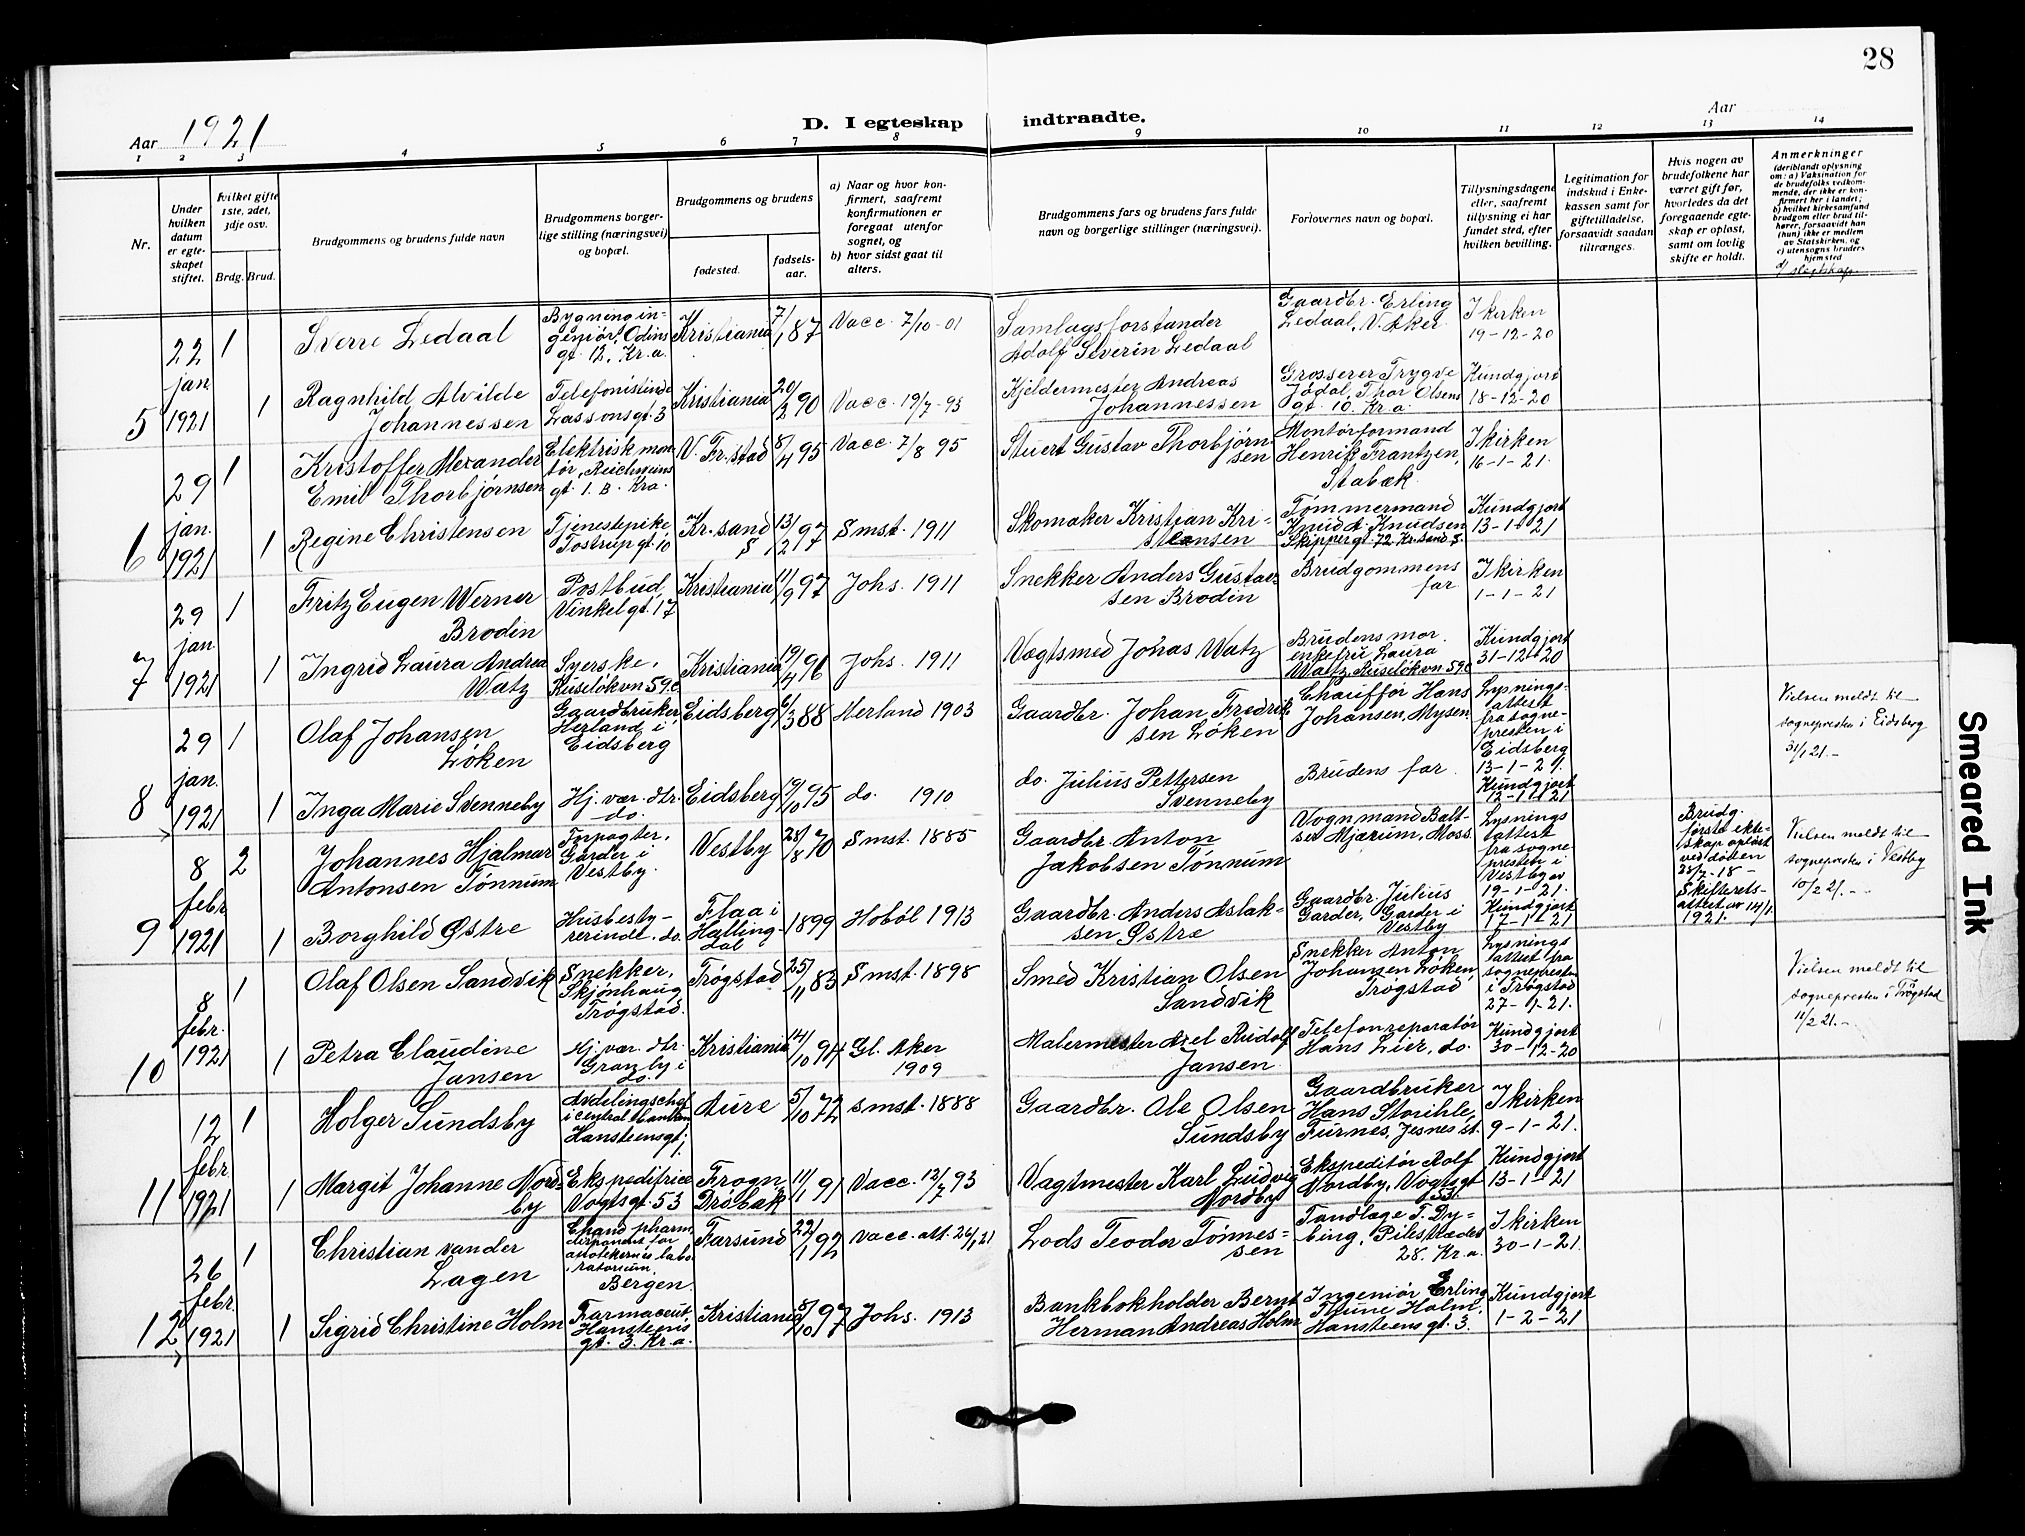 28
Aar 1921
D. I egteskap indtraadte.
Aar
1 2 3 4 5 6 7 8 9 10 11 12 13 14
Nr.
Under hvilken datum er egteskapet stiftet.
hvilket gifte 1ste, 2det, 3dje osv.
Brdg. Brud.
Brudgommens og brudens fulde navn
Brudgommens borgerlige stilling (næringsvei) og bopæl.
Brudgommens og brudens
fødested.
fødselsaar.
a) Naar og hvor konfirmert, saafremt konfirmationen er foregaat utenfor sognet, og
b) hvor sidst gaat til alters.
Brudgommens fars og brudens fars fulde navn og borgerlige stillinger (næringsvei).
Forlovernes navn og bopæl.
Tillysningsdagene eller, saafremt tillysning ei har fundet sted, efter hvilken bevilling.
Legitimation for indskud i Enkekassen samt for giftetilladelse, forsaavidt saadan tiltrænges.
Hvis nogen av brudefolkene har været gift før, hvorledes da det foregaaende egteskap er opløst, samt om lovlig skifte er holdt.
Anmerkninger
(deriblandt oplysning om: a) Vaksination for de brudefolks vedkommende, der ikke er konfirmert her i landet; b) hvilket kirkesamfund brudgom eller brud tilhører, forsaavidt han (hun) ikke er medlem av Statskirken, og c) utensogns bruders hjemsted
d) slegtskap
5 22 jan 1921
1 Sverre Ledaal Bygningingeniør, Odinsgt. 12, Kr.a. Kristiania 7/1 87 Vacc. 7/10-01 Samlagsforstander Adolf Severin Ledaal Gaardbr. Erling Ledaal, V. Aker. I kirken 19-12-20
1 Ragnhild Alvilde Johannessen Telefonistinde Lassonsgt. 3 Kristiania 20/2 90 Vacc. 19/7-93 Kjeldermester Andreas Johannessen Grosserer Trygve Jødal, Thor Olsens gt. 10. Kr.a. Kundgjort 18-12-20
6 29 jan. 1921
1 Kristoffer Alexander Emil Thorbjørnsen Elektrisk montør, Reichweinsgt. 1. B. Kra. V. Fr.stad 8/4 95 Vacc. 7/8 95 Stuert Gustav Thorbjørnsen Montørformand Henrik Frantzen, Stabæk. I kirken 16-1-21.
1 Regine Christensen Tjenestepike, Tostrupgt. 10 Kr.sand S. 13/2 97 Smst. 1911 Skomaker Kristian Kristensen Tømmermand Knud A. Knudsen Skippergt. 72 Kr.sand S. Kundgjort 13-1-21
7 29 jan 1921
1 Fritz Eugen Werner Brodin Postbud, Vinkelgt. 17 Kristiania 11/9 97 Johs. 1911 Snekker Anders Gustavsen Brodin Brudgommens far I kirken 1-1-21
1 Ingrid Laura Andrea Watz Syerske, Ruseløkvn 59c Kristiania 19/4 96 Johs. 1911 Vægtsmed Johas Watz Brudens mor, enkefru Laura Watz, Ruseløkvn 59c Kundgjort 31-12-20
8 29 jan. 1921
1 Olaf Johansen Løken Gaardbruker, Herland i Eidsberg Eidsberg 6/3 88 Herland 1903 Gaardbr. Johan Fredriksen Løken Chauffør Hans Johansen, Mysen Lysningsattest fra sognepresten i Eidsberg 13-1-21. Vielsen meldt til sognepresten i Eidsberg 31/1 21.-
1 Inga Marie Svenneby Hj. vær. dtr. do. Eidsberg 19/10 95 do. 1910 do. Julius Pettersen Svenneby Brudens far. Kundgjort 12-1-21
9 8 febr 1921
2 Johannes Hjalmar Antonsen Tønnum Forpagter, Garder i Vestby. Vestby 28/8 70 Smst. 1885 Gaardbr. Anton Jakobsen Tønnum Vognmand Baltser Mjærum, Moss. Lysningsattest fra sognepresten i Vestby av 19-1-21. Brudg første ekteskap opløst ved døden 28/7-18- Skifteretsattest av 14/1 1921. Vielsen meldt til sognepresten i Vestby 10/2 21.-
1 Borghild Østre Husbestyrerinde. do. Flaa i Hallingdal 1899 Hobøl 1913 Gaardbr. Anders Aslaksen Østre Gaardbr. Julius Garder, Garder i Vestby Kundgjort 17-1-21
10 8 febr. 1921
1 Olaf Olsen Sandvik Snekker, Skjønhaug Trøgstad. Trøgstad 25/11 83 Smst. 1898 Smed Kristian Olsen Sandvik Snekker Anton Johansen Løken, Trøgstad Lysningsattest fra sognepresten i Trøgstad 27-1-21. Vielsen meldt til sognepresten i Trøgstad 11/2 21.-
1 Petra Claudine Jansen Hj. vær. dtr. Granby i do. Kristiania 14/10 94 Gl. Aker 1909 Malermester Axel Rudolf Jansen Telefonreparatør Hans Lier, do. Kundgjort 30-12-20
11 12 febr 1921
1 Holger Sundsby Avdelingschef i central Hansteensgt. Aure 5/10 72 Smst. 1888 Gaardbr. Ole Olsen Sundsby Gaardbruker Hans Storihle, Furnes, Jesnes st. I kirken 9-1-21.
1 Margit Johanne Nordby Ekspeditrice Vogtsgt. 53 Frogn Drøbak 11/1 91 Vacc. 12/7 93 Vagtmester Karl Ludvig Nordby Ekspeditør Rolf Nordby, Vogtsgt 53. Kundgjort 13-1-21
12 26 febr. 1921
1 Christian vander Lagen Chand. pharm, disponent for apotekernes laboratorium, Bergen. Farsund 22/1 92 Vacc. att. 26/1 21 Lods Teodor Tønnessen Tandlæge T. Dybing, Pilestrædet 28. Kr.a. I kirken 30-1-21.
1 Sigrid Christine Holm Farmaceut, Hansteensgt. 3. Kr.a. Kristiania 8/10 97 Johs. 1913 Bankbokholder Bernt Herman Andreas Holm Ingeniør Erling Thune Holm, Hansteensgt. 3. Kundgjort 1-2-21
Smeared Ink